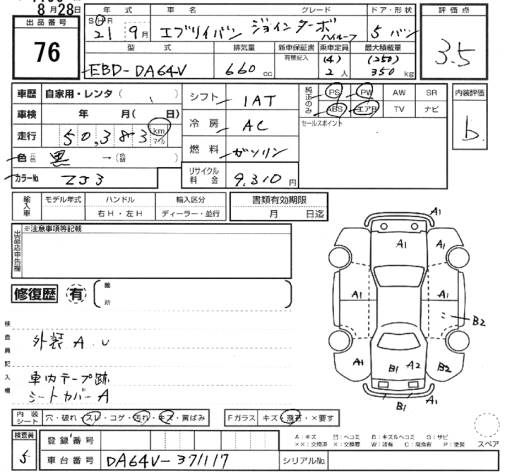 8月28日
出品番号
76
年式 車名 グレード ドア・形状
S H 21 9月 エブリイバン ジョインターボ ハイルーフ 5 バン
型式 排気量 新車保証書 有無記入 乗車定員 最大積載量
EBD-DA64V 660 cc (4) 2人 (250) 350 kg
評価点
3.5
車歴 自家用・レンタ( )
車検 年 月( 日)
走行 50,383 km マイル
色 黒
カラーNo. ZJ3
シフト 1AT
冷房 AC
燃料 ガソリン
リサイクル料金 9,310円
純正のみ PS PW AW SR
ABS エアB TV ナビ
セールスポイント
内装評価
b
輸入車 モデル年式 ハンドル 輸入区分
右H・左H ディーラー・並行
書類有効期限
月 日迄
出品店申告欄
※注意事項等記載
修復歴 有 箇所
検査員記入欄
外装 A.U
車内テープ跡
シートカバーA
A1
A1
A1 A1
A1 A1 A1
B2
A1 A2 A2
B1 B1
内装シート 穴・破れ・スレ・コゲ・汚れ・キズ・黄ばみ
Fガラス キズ・飛石・×要す
A:キズ U:ヘコミ B:キズ&ヘコミ S:サビ
××:交換済 X:交換要 W:波有 C:腐食有 P:塗装
スペア
検査員
5
登録番号
車台番号 DA64V-371117
シリアルNo.